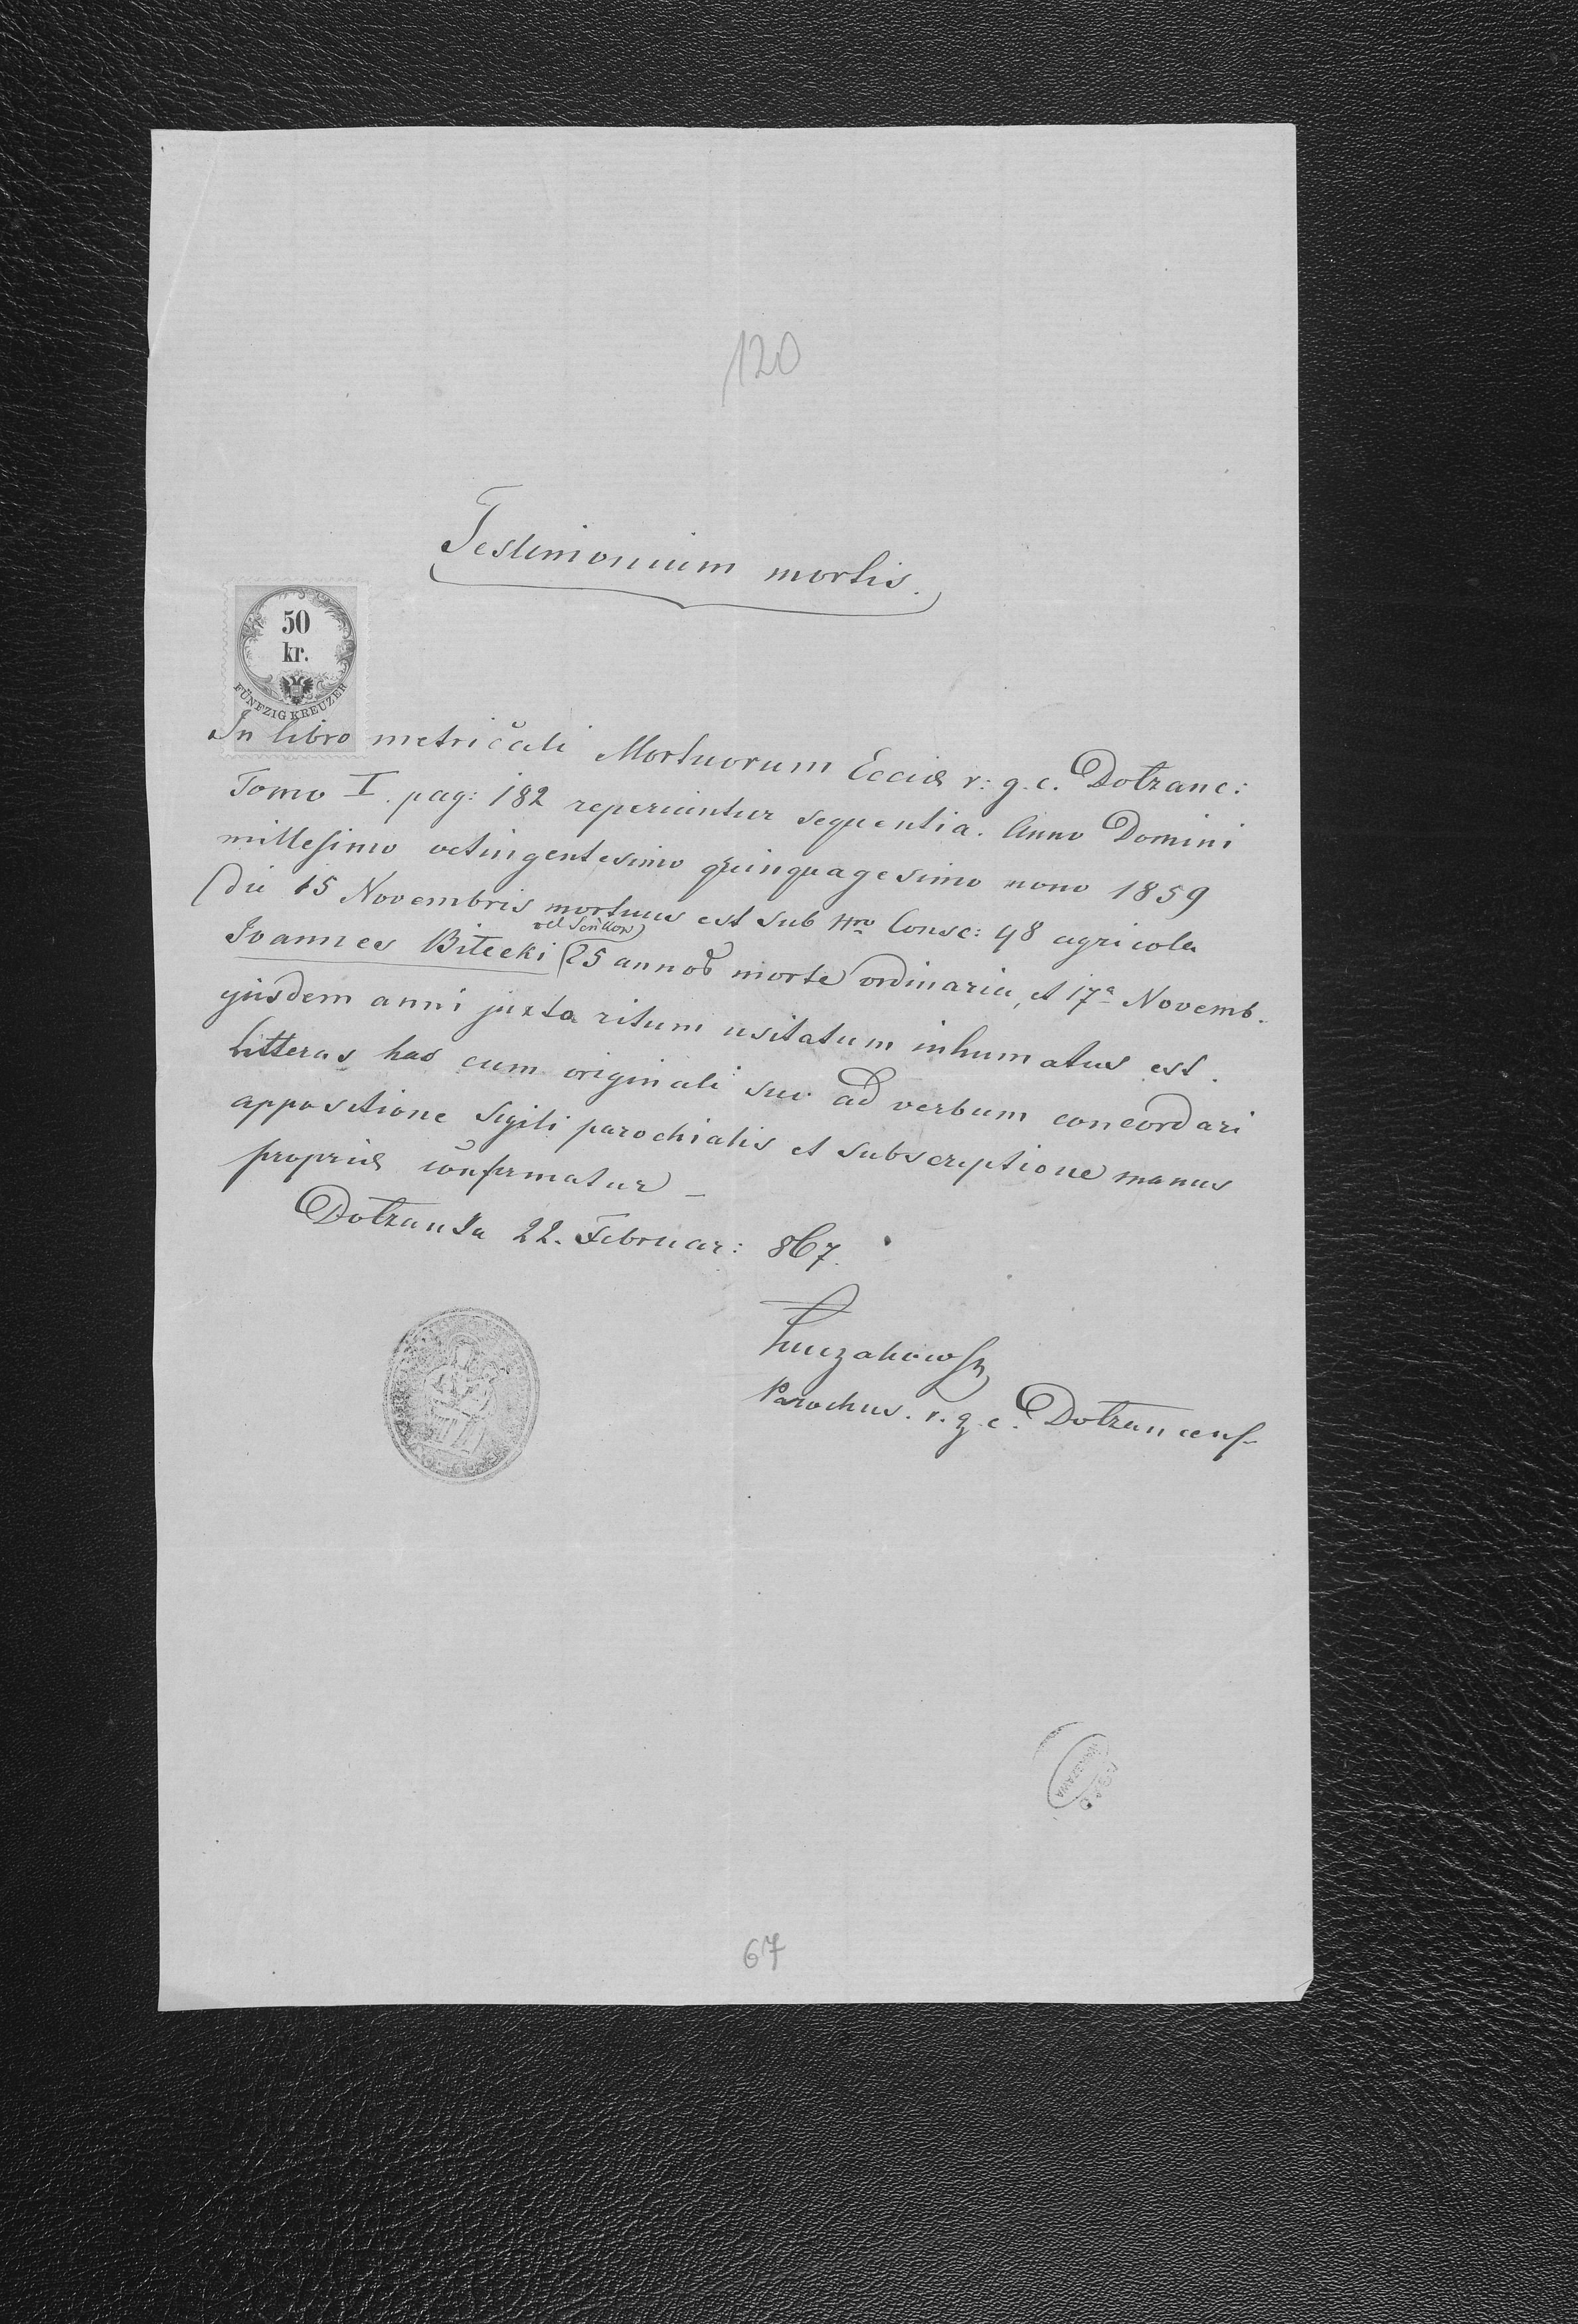 120
Testimonium mortis.
50
kr.
FÜNFZIG KREUZER
In libro metricali Mortuorum Ecciæ r: g. c. Dołzanc:
Tomo I. pag: 182 reperiuntur sequentia. Anno Domini
millesimo octingentesimo quinquagesimo nono 1859
die 15 Novembris mortuus est sub Nro Consc: 48 agricola
vel Seńkow
Joannes Biłecki 25 annor morte ordinaria, et 17a Novemb.
ejusdem anni juxta ritum usitatum inhumatus est.
Litteras has cum originali suo ad verbum concordari
appositione Sigili parochialis et subscriptione manus
propriæ confirmatur
Dołzanka 22. Februar: 867.
Parochus. r. g. c. Dołzancens
WARSZAWA
67